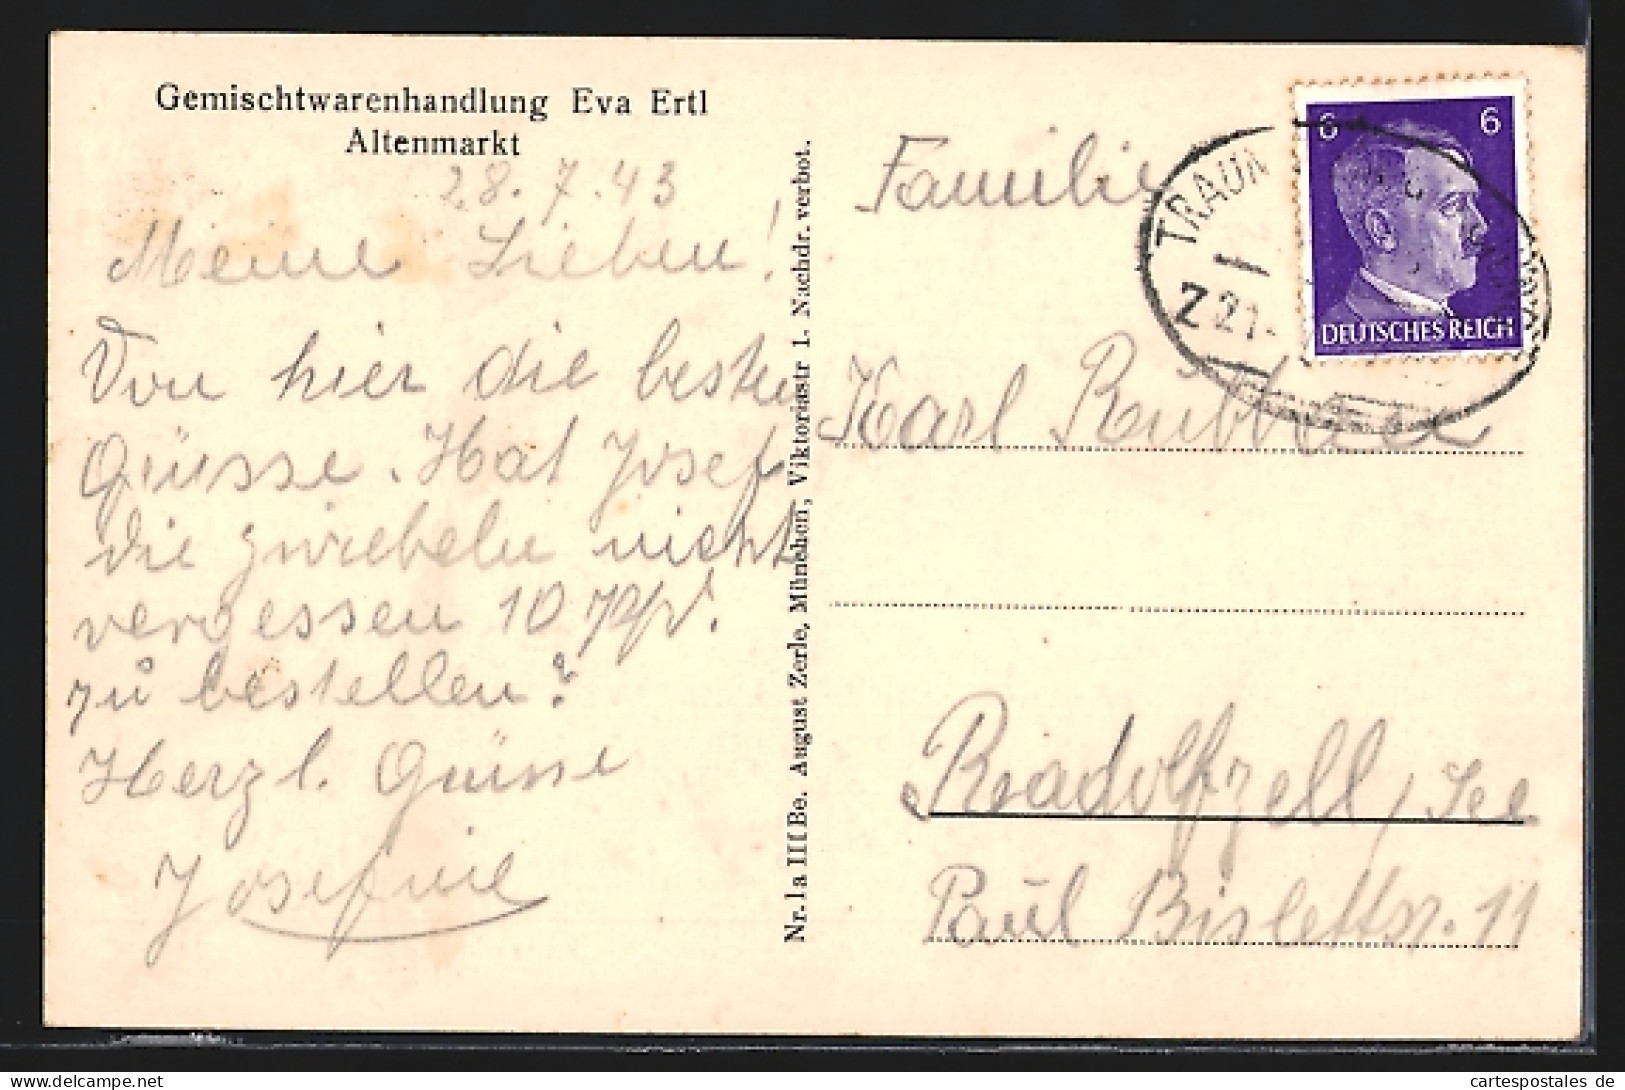 Gemischtwarenhandlung Eva Ertl
Altenmarkt
28.7.43
Meine Lieben!
Von hier die besten
Grüsse. Hat Josef
die zwiebeln nicht
vergessen 10
zu bestellen?
Herzl. Grüsse
Josefine
Nr. 1a III Be. August Zerle, München, Viktoriastr 1. Nachdr. verbot.
Familie
Karl
Radolfzell, See
Paul 11
TRAUN
Z 21
6 6
DEUTSCHES REICH
cartespostales.de